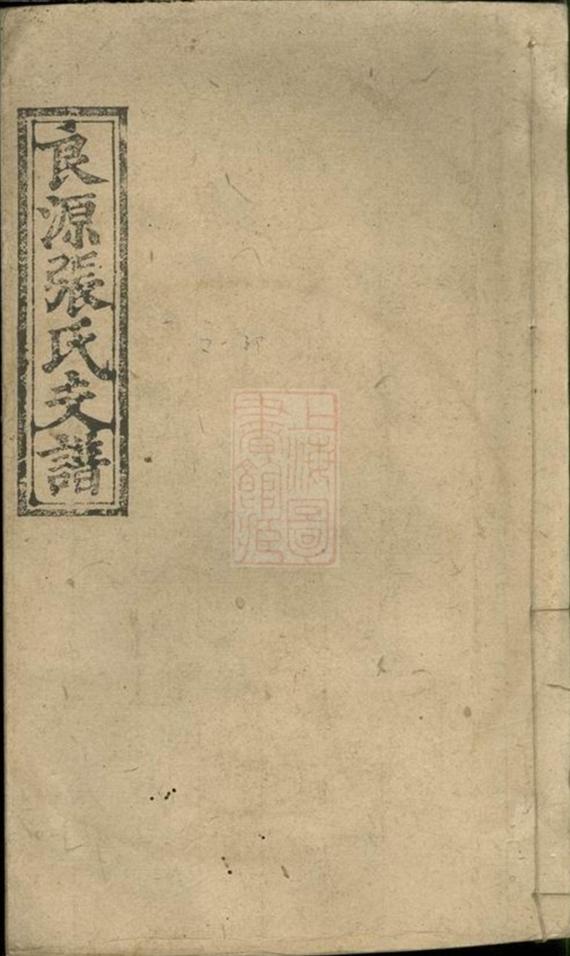 良源張氏支譜
上海圖
書館藏